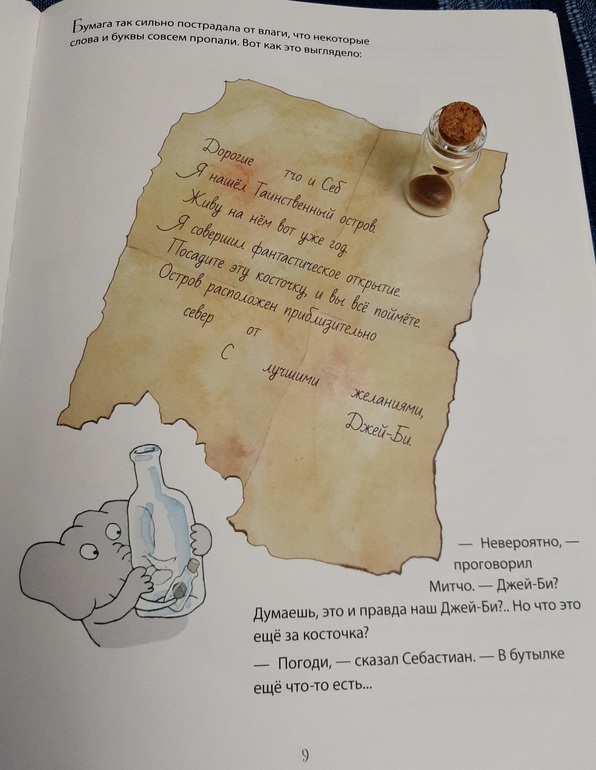 Бумага так сильно пострадала от влаги, что некоторые
слова и буквы совсем пропали. Вот как это выглядело:
Дорогие тчо и Себ
Я нашёл Таинственный остров.
Живу на нём вот уже год.
Я совершил фантастическое открытие.
Посадите эту косточку, и вы всё поймёте.
Остров расположен приблизительно
север от
С лучшими желаниями,
Джей-Би.
— Невероятно, —
проговорил
Митчо. — Джей-Би?
Думаешь, это и правда наш Джей-Би?.. Но что это
ещё за косточка?
— Погоди, — сказал Себастиан. — В бутылке
ещё что-то есть...
9